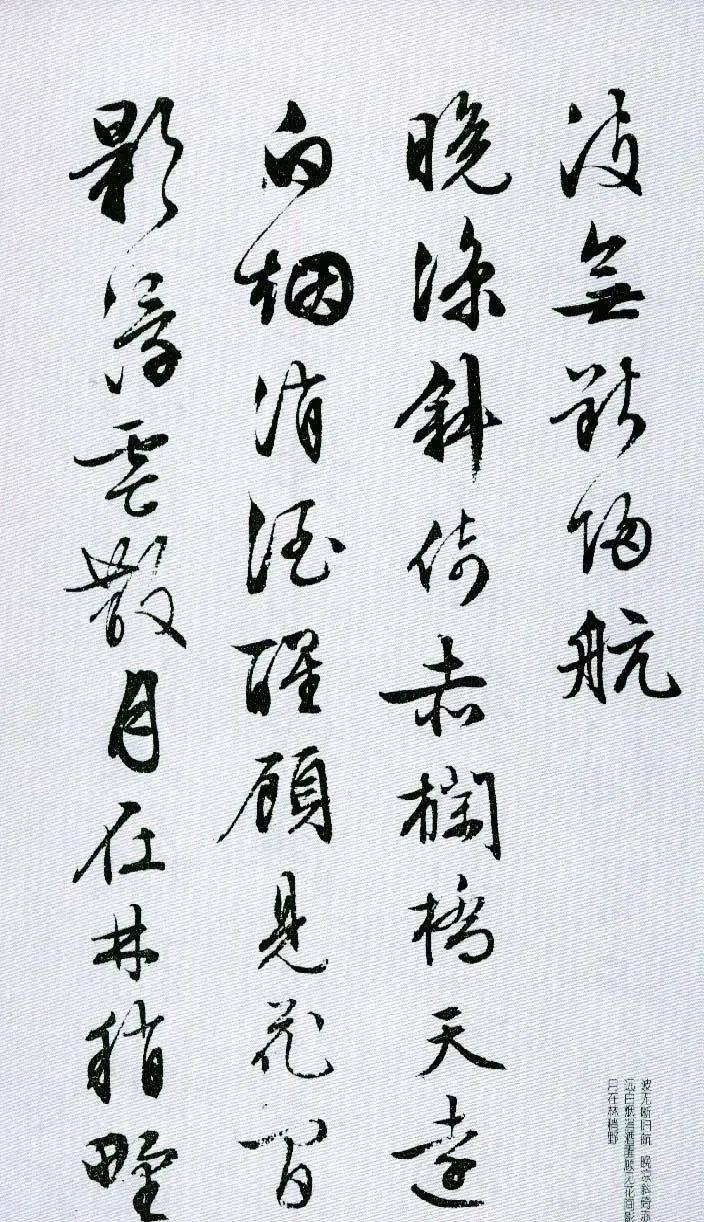 波無斷歸航
晚涼斜倚赤欄橋天遠
白烟消酒醒顧見花間
影浮雲散月在林稍野
波无断归航 晚凉斜倚赤
远白烟消酒醒顾见花间影
月在林稍野